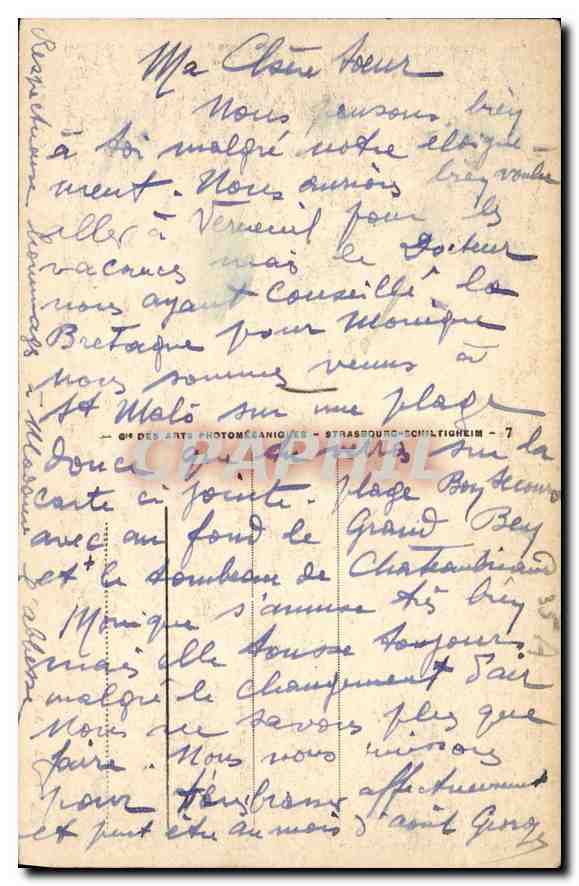 Ma Chère Soeur
Nous pensons bien
à toi malgré notre éloigne-
ment. Nous aurions bien voulu
aller à Verneuil pour les
vacances mais le Docteur
nous ayant conseillé la
Bretagne pour Monique
nous sommes venus à
St Malo sur une plage
Cie DES ARTS PHOTOMÉCANIQUES - STRASBOURG-SCHILTIGHEIM - 7
douce que sur la
carte ci jointe. plage Bon Secours
avec au fond le Grand Bey
et le tombeau de Chateaubriand
Monique s'amuse très bien
mais elle tousse toujours
malgré le changement d'air
Nous ne savons plus que
faire. Nous nous unissons
pour t'embrasser affectueusement
et peut être au mois d'août Georges
Respectueux hommages à Madame l'abbesse
35 A
CPAPHIL